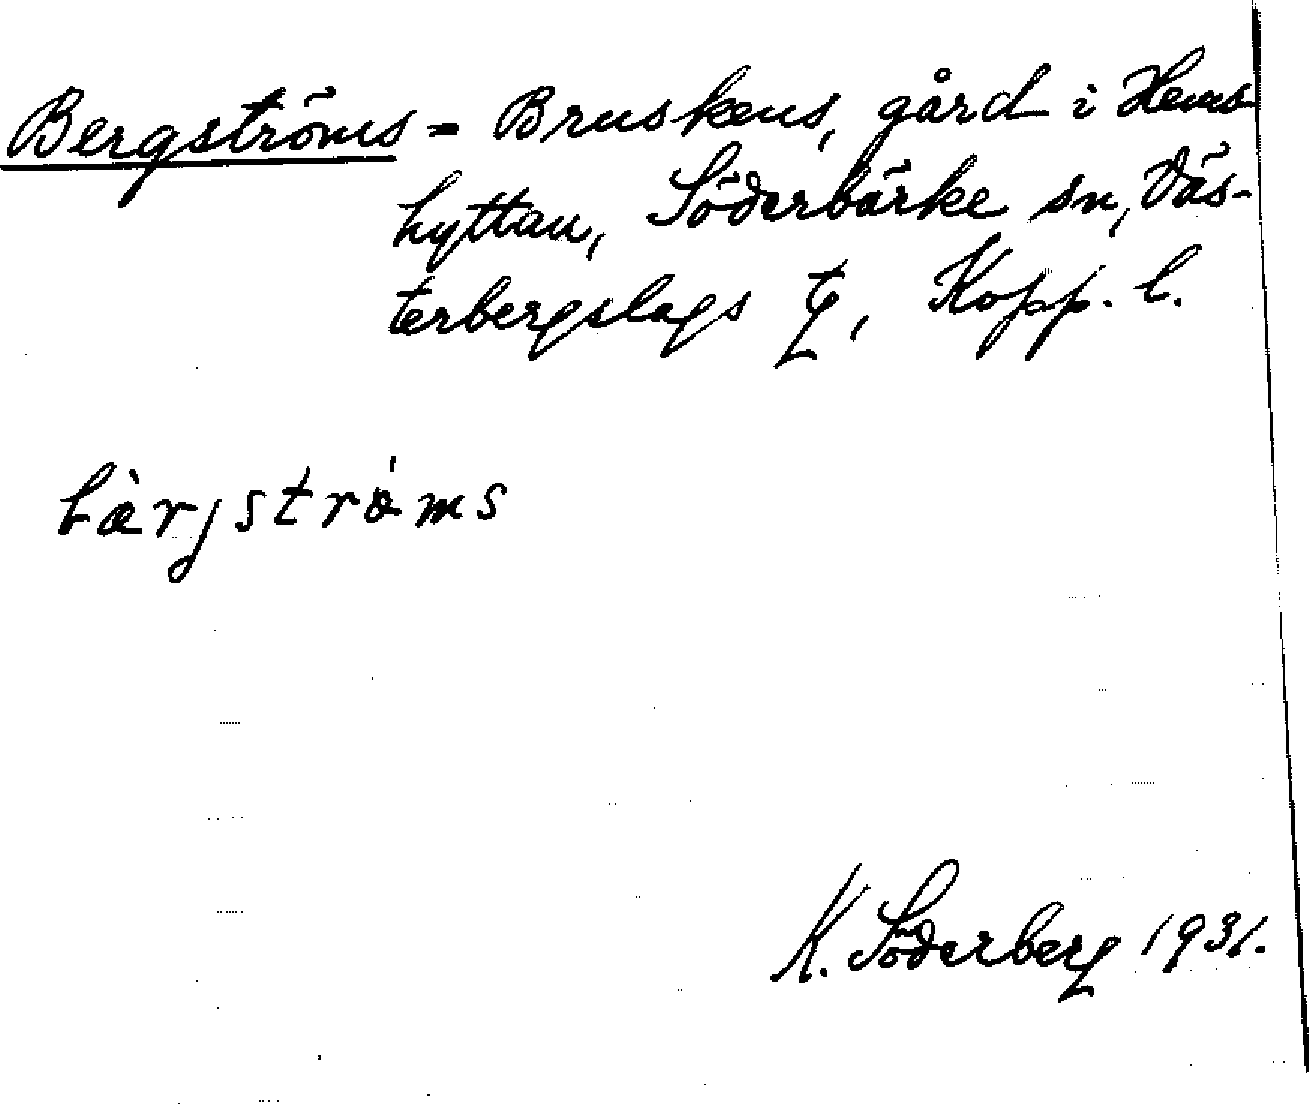 Bergströms = Bruskens, gård i Hems
hyttan, Söderbärke sn, Väs-
terbergslags tg, Kopp. l.
bàrjstrǿms
K. Söderberg 1931.